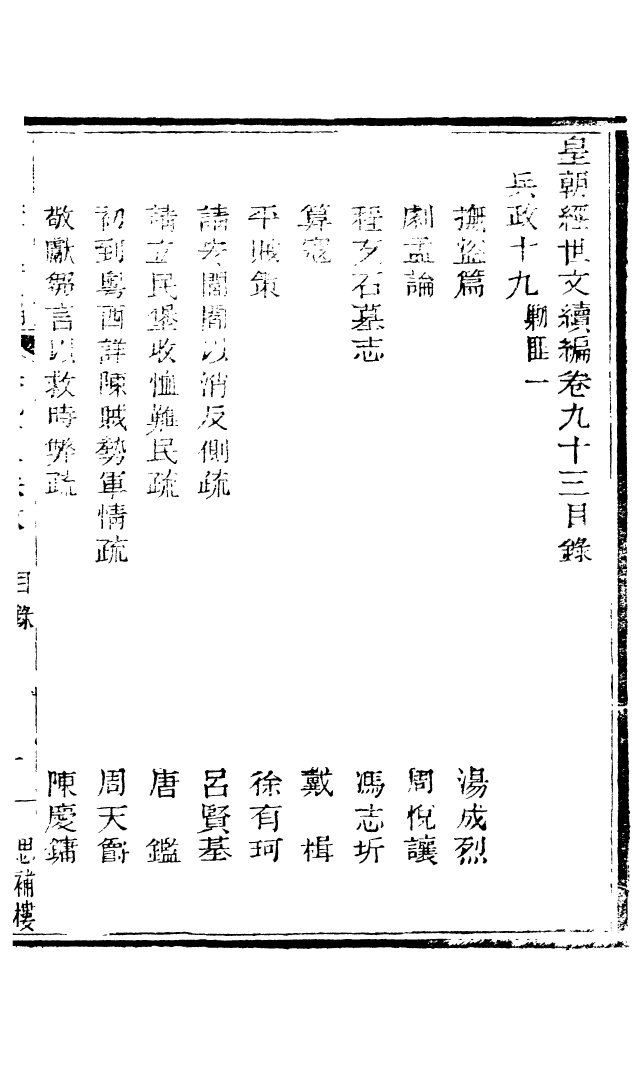 皇朝經世文續編卷九十三目錄
兵政十九 勦匪一
撫盜篇 湯成烈
劇孟論 周悅讓
程文石墓志 馮志圻
算寇 戴楫
平賊策 徐有珂
請安閭閻以消反側疏 呂賢基
請立民堡收恤難民疏 唐鑑
初到粵西詳陳賊勢軍情疏 周天爵
敬獻芻言以救時弊疏 陳慶鏞
目錄
一
思補樓